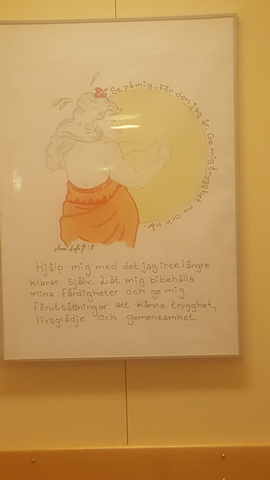 Se på mig, för den jag är. Ge mig trygghet nu och här.
Hjälp mig med det jag inte längre
klarar själv. Låt mig bibehålla
mina färdigheter och ge mig
förutsättningar att känna trygghet,
livsglädje och gemensamhet.